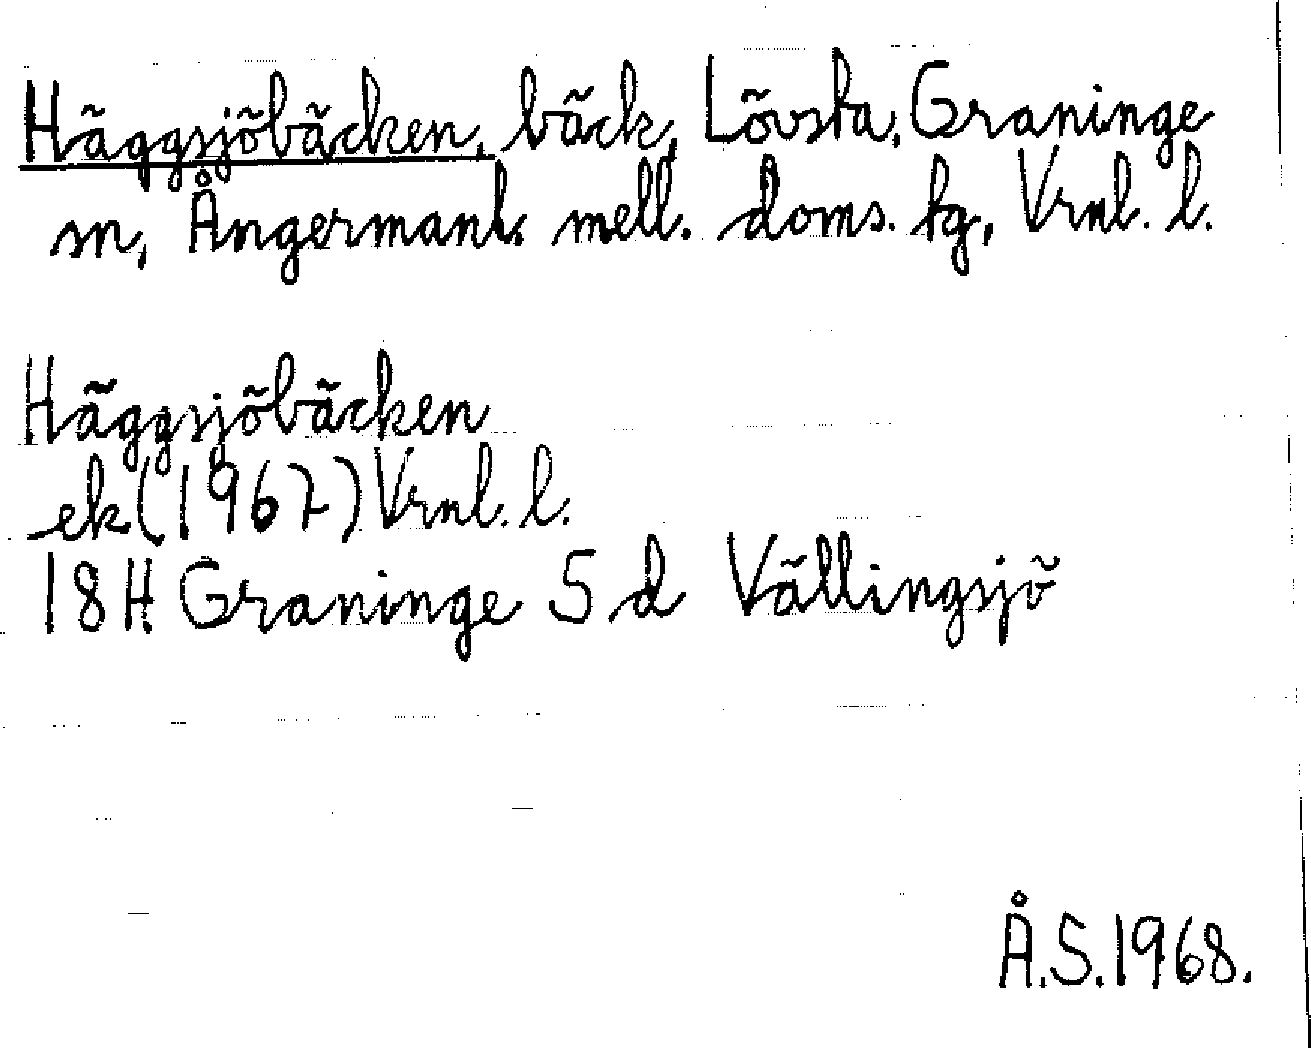 Häggsjöbäcken, bäck, Lövsta, Graninge
sn, Ångermanl. mell. doms. tg, Vrnl. l.
Häggsjöbäcken
ek (1967) Vrnl. l.
18H Graninge 5 d Vällingsjö
Å.S. 1968.